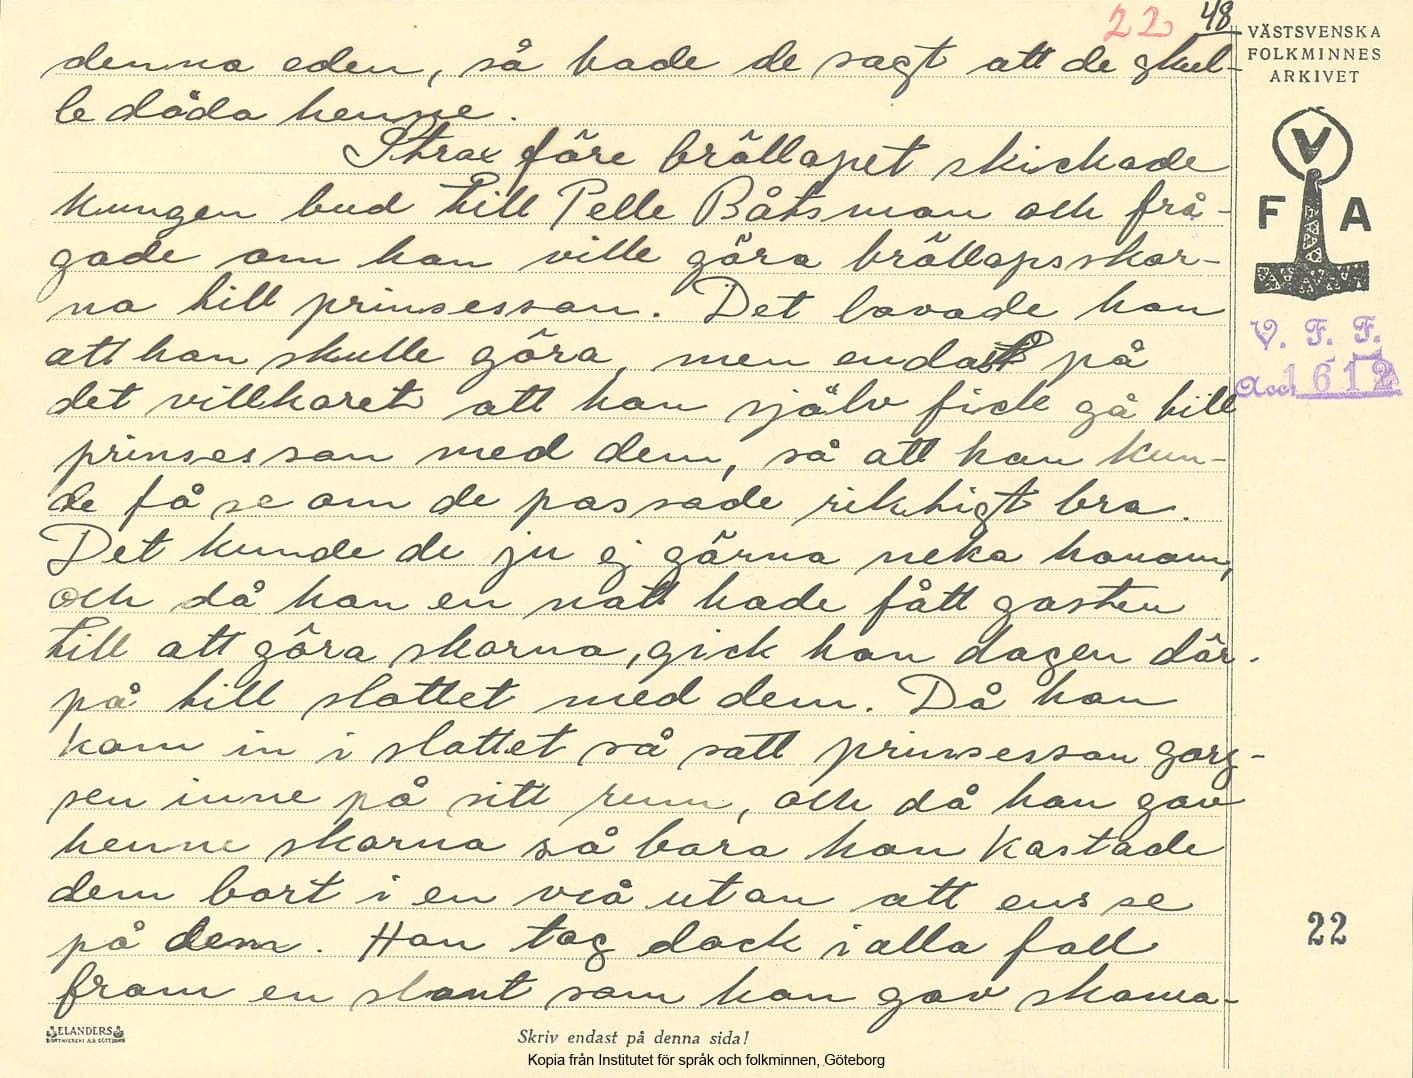 22 48
VÄSTSVENSKA
FOLKMINNES
ARKIVET
V
F A
V. F. F.
Acc. 1612
denna eden, så hade de sagt att de skul-
le döda henne.
Strax före bröllopet skickade
kungen bud till Pelle Båtsman och frå-
gade om han ville göra bröllopsskor-
na till prinsessan. Det lovade han
att han skulle göra, men endast på
det villkoret att han själv fick gå till
prinsessan med dem, så att han kun-
de få se om de passade riktigt bra.
Det kunde de ju ej gärna neka honom,
och då han en natt hade fått gasten
till att göra skorna, gick han dagen där-
på till slottet med dem. Då han
kom in i slottet så satt prinsessan sorg-
sen inne på sitt rum, och då han gav
henne skorna så bara hon kastade
dem bort i en vrå utan att ens se
på dem. Han tog dock i alla fall
fram en slant som han gav skoma-
22
ELANDERS
BOKTRYCKERI A.B. GÖTEBORG
Skriv endast på denna sida!
Kopia från Institutet för språk och folkminnen, Göteborg